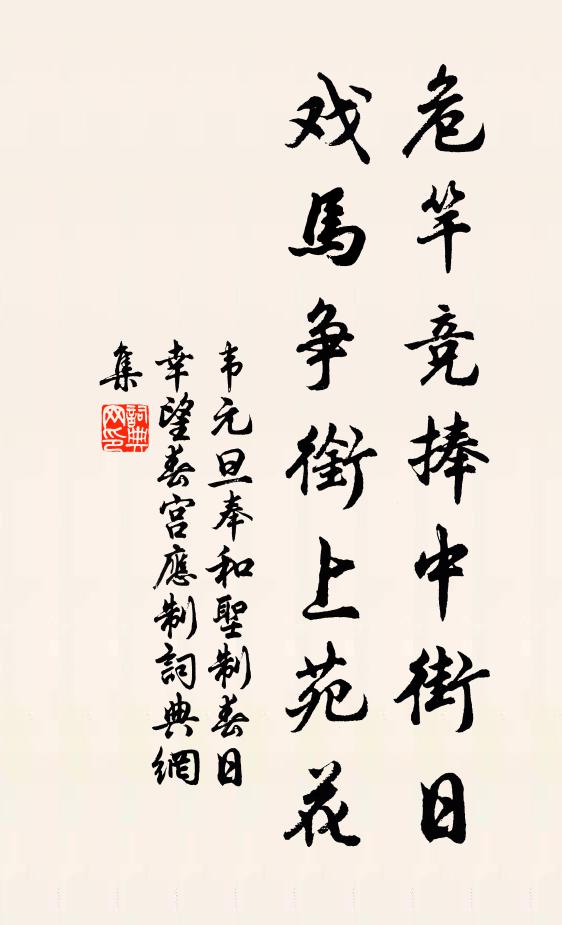 危竿竞捧中街日
戏馬争銜上苑花
韦元旦奉和聖制春日
幸望春宫應制詞典網
集
詞典网印